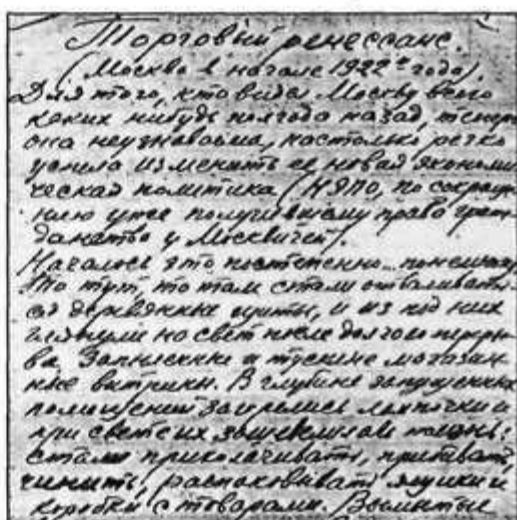 Торговый ренессанс.
(Москва в начале 1922го года).
Для того, кто видел Москву всего
каких нибудь полгода назад, теперь
она неузнаваема, настолько резко
успела изменить ее новая экономи
ческая политика (НЭПО, по сокраще
нию уже получившему право граж
данства у Москвичей).
Началось это постепенно... понемногу
То тут, то там стали отваливать
ся деревянные щиты, и из под них
глянули на свет после долгого переры
ва запыленные и тусклые магазин
ные витрины. В глубине запущенных
помещений загорелись лампочки и
при свете их зашевелилась жизнь:
стали приколачивать, прибивать,
чинить, распаковывать ящики и
коробки с товарами. Вымытые